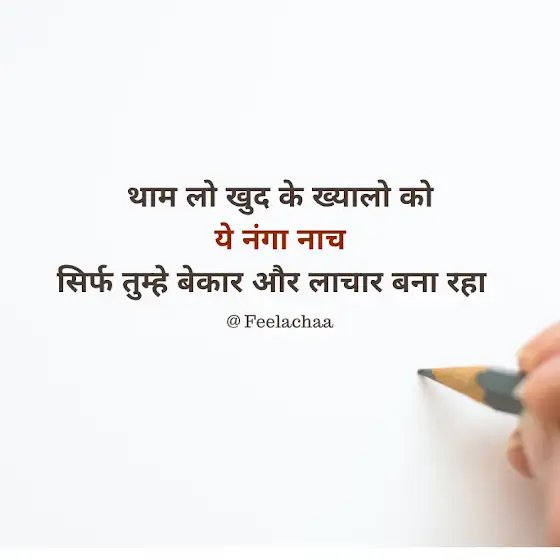 थाम लो खुद के ख्यालो को
ये नंगा नाच
सिर्फ तुम्हे बेकार और लाचार बना रहा
@ Feelachaa